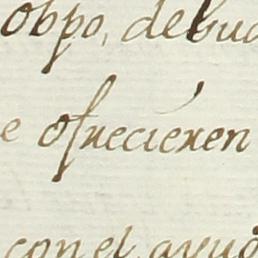 obpo, de bu
e ofrecieren
con el ayu